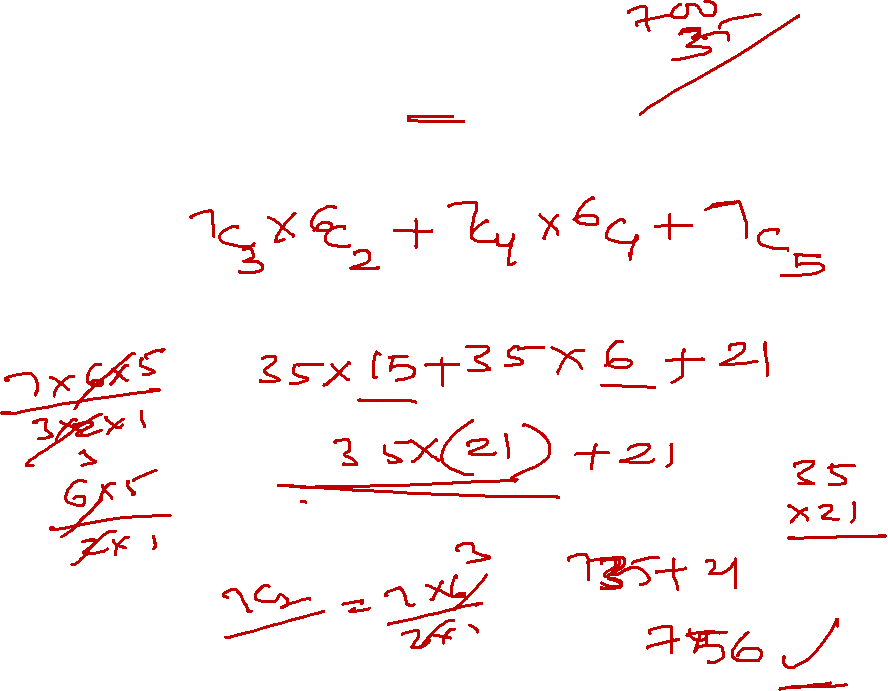 700
35
=
7C3 × 6C2 + 7C4 × 6C1 + 7C5
7×6×5
3×2×1
35 × 15 + 35 × 6 + 21
35×(21) + 21
6×5
2×1
35
×21
7C2 = 7×6
2×1
3
735 + 21
756 ✓